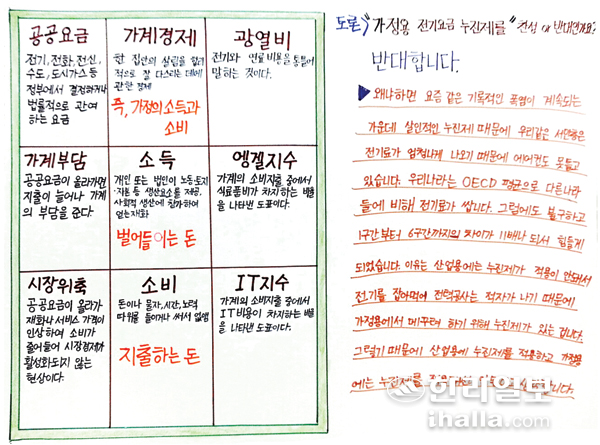 공공요금
전기, 전화, 전신,
수도, 도시가스 등
정부에서 결정하거나
법률적으로 관여
하는 요금
가계경제
한 집안의 살림을 합리
적으로 잘 다스리는 데에
관한 경제
즉, 가정의 소득과
소비
광열비
전기와 연료 비용을 통틀어
말하는 것이다.
가계부담
공공요금이 올라가면
지출이 늘어나 가계
의 부담을 준다.
소득
개인 또는 법인이 노동·토지
·자본 등 생산요소를 제공,
사회적 생산에 참가하여
얻는 재화
벌어들이는 돈
엥겔지수
가계의 소비지출 중에서
식료품비가 차지하는 비율
을 나타낸 도표이다.
시장위축
공공요금이 올라가
재화나 서비스 가격이
인상하여 소비가
줄어들어 시장경제가
활성화되지 않는
현상이다.
소비
돈이나 물자, 시간, 노력
따위를 들이거나 써서 없앰
지출하는 돈
IT지수
가계의 소비지출 중에서
IT비용이 차지하는 비율
을 나타낸 도표이다.
토론》 가정용 전기요금 누진제를 "찬성 or 반대인가요?
반대합니다.
▶ 왜냐하면 요즘 같은 기록적인 폭염이 계속되는
가운데 살인적인 누진제 때문에 우리같은 서민층은
전기료가 엄청나게 나오기 때문에 에어컨도 못틀고
있습니다. 우리나라는 OECD 평균으로 다른나라
들에 비해 전기료가 쌉니다. 그럼에도 불구하고
1구간부터 6구간까지의 차이가 11배나 되서 힘들게
되었습니다. 이유는 산업용에는 누진제가 적용이 안돼서
전기를 잡아먹어 전력공사는 적자가 나기 때문에
가정용에서 메꾸려 하기 위해 누진제가 있는 겁니다.
그렇기 때문에 산업용에 누진제를 적용하고 가정용
에는 누진제를
한라일보
ihalla.com